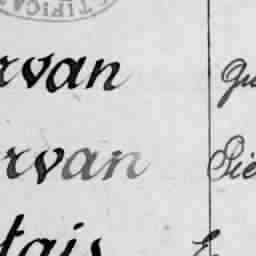 rvan Gu
rvan Pie
tais